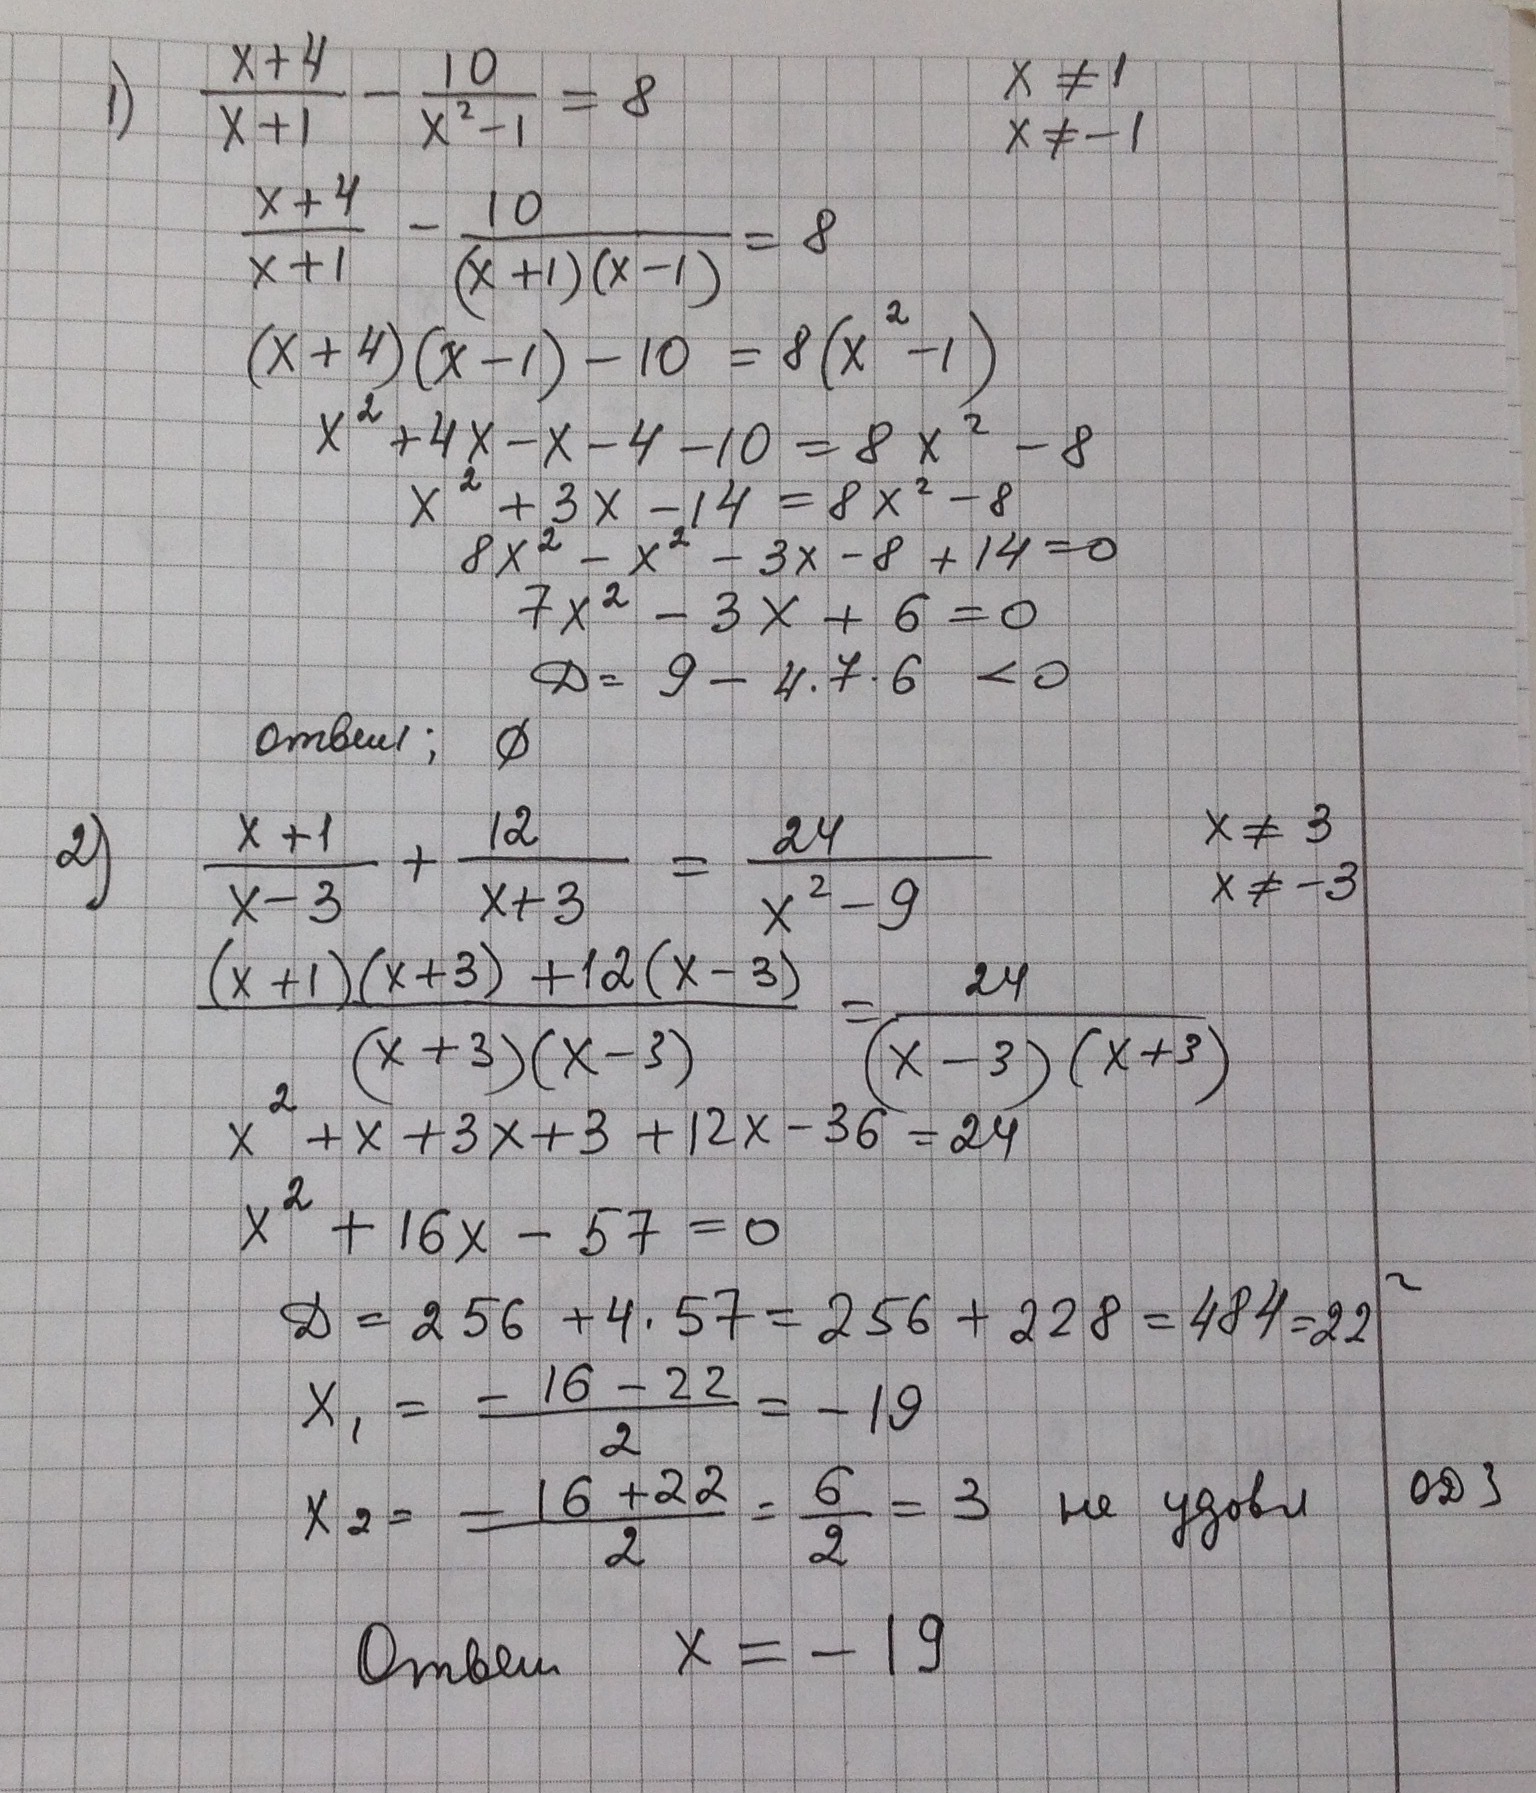 1) (x+4)/(x+1) - 10/(x²-1) = 8    x ≠ 1
x ≠ -1
(x+4)/(x+1) - 10/((x+1)(x-1)) = 8
(x+4)(x-1) - 10 = 8(x²-1)
x² + 4x - x - 4 - 10 = 8x² - 8
x² + 3x - 14 = 8x² - 8
8x² - x² - 3x - 8 + 14 = 0
7x² - 3x + 6 = 0
D = 9 - 4·7·6 < 0
Ответ: ∅
2) (x+1)/(x-3) + 12/(x+3) = 24/(x²-9)    x ≠ 3
x ≠ -3
((x+1)(x+3) + 12(x-3))/((x+3)(x-3)) = 24/((x-3)(x+3))
x² + x + 3x + 3 + 12x - 36 = 24
x² + 16x - 57 = 0
D = 256 + 4·57 = 256 + 228 = 484 = 22²
x₁ = (-16-22)/2 = -19
x₂ = (-16+22)/2 = 6/2 = 3 не удовл ОДЗ
Ответ x = -19